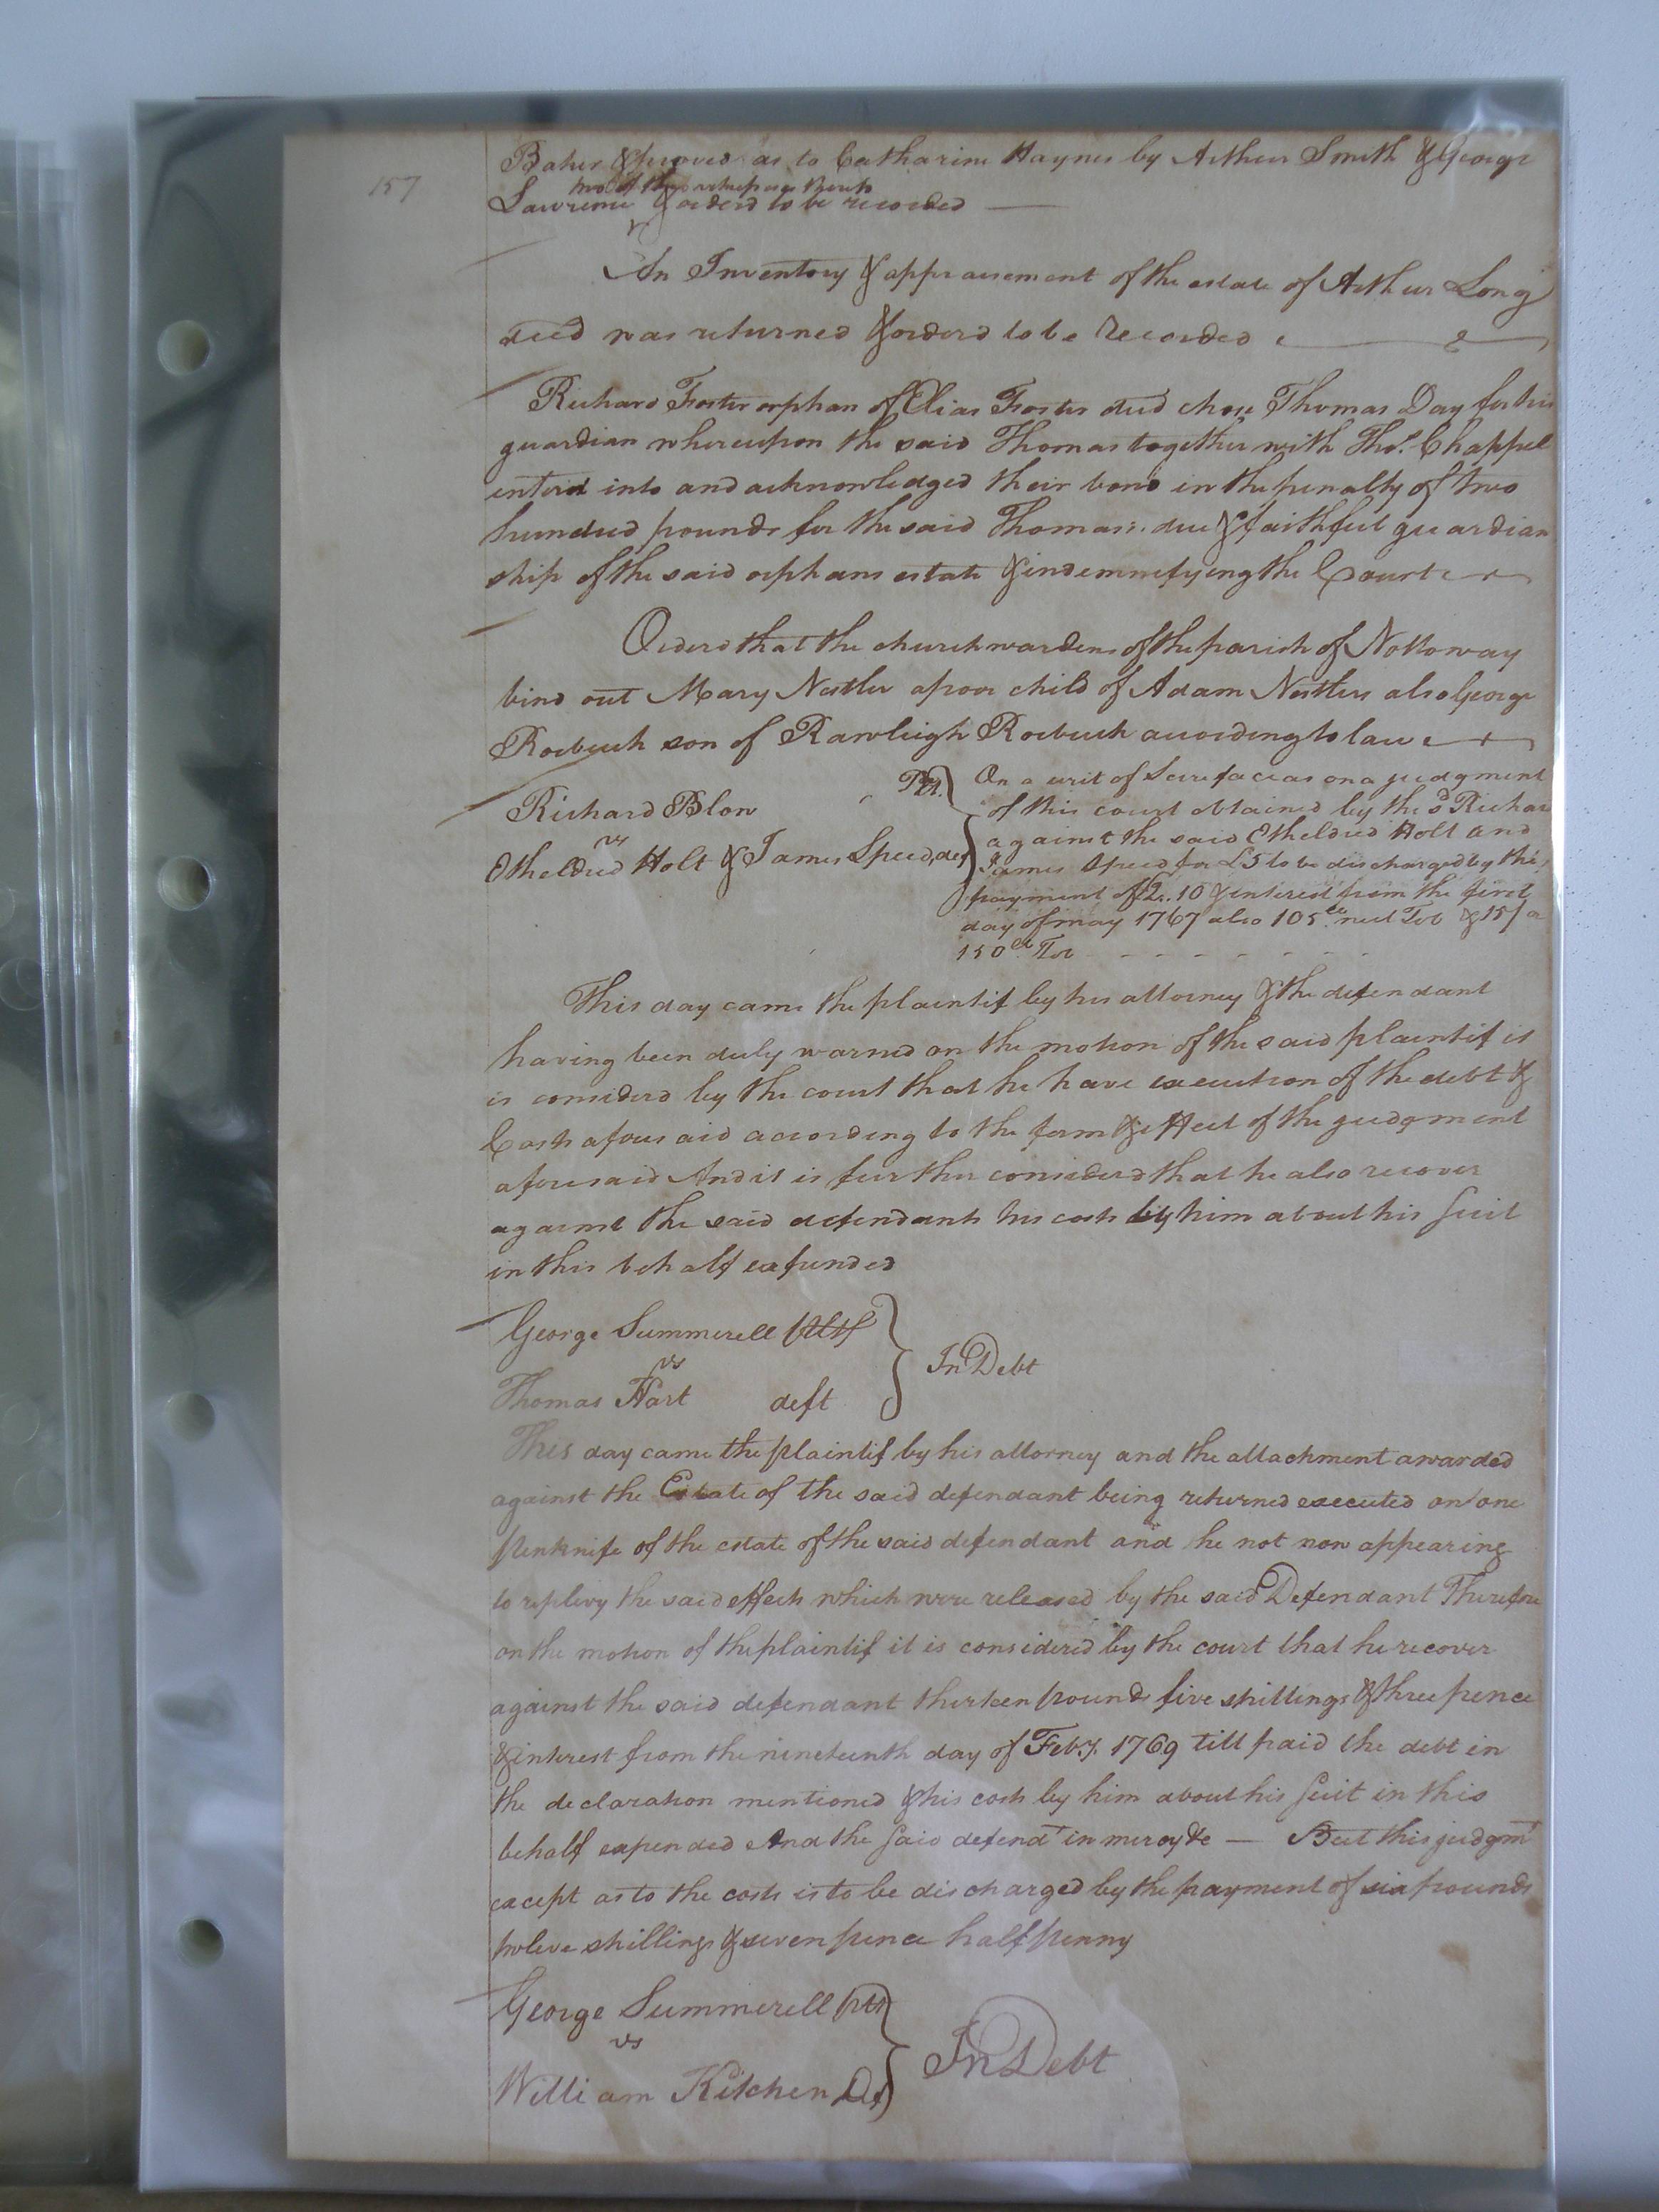 157
Baker & proved as to Catharine Haynes by Arthur Smith & George
two of the witnesses thereto
Lawrence & orderd to be recorded
An Inventory & appraisement of the estate of Arthur Long
decd was returned & orderd to be Recorded
Richard Foster orphan of Elias Foster decd chose Thomas Day for his
guardian whereupon the said Thomas together with Thos. Chappel
enterd into and acknowledged their bond in the penalty of two
hundred pounds for the said Thomas's due & faithful guardian
ship of the said orphans estate & indemnifying the Court
Orderd that the churchwardens of the parish of Nottoway
bind out Mary Nestler a poor child of Adam Nestlers also George
Roebuck son of Rawleigh Roebuck according to law
Richard Blow Plt.
vs
Etheldred Holt & James Speed, def
On a writ of Scire facias on a judgment
of this court obtained by the sd Richar
against the said Etheldred Holt and
James Speed for £5 to be discharged by the
payment of 2.10 & interest from the first
day of may 1767 also 105 lb nett Tob & 15/ a
150 lb Tob
This day came the plaintif by his attorney & the defendant
having been duly warned on the motion of the said plaintif it
is considerd by the court that he have execution of the debt &
Costs aforesaid according to the form & effect of the judgment
aforesaid And it is further considerd that he also recover
against the said defendants his costs by him about his suit
in this behalf expended
George Summerell Plt
vs
Thomas Hart deft
In Debt
This day came the plaintif by his attorney and the attachment awarded
against the Estate of the said defendant being returned executed on one
Penknife of the estate of the said defendant and he not now appearing
to replevy the said effects which were released by the said Defendant Therefore
on the motion of the plaintif it is considered by the court that he recover
against the said defendant thirteen pounds five shillings & three pence
& interest from the nineteenth day of Feb.y. 1769 till paid the debt in
the declaration mentioned & his costs by him about his suit in this
behalf expended And the said defendt in mercy &c — But this judgmt
except as to the costs is to be discharged by the payment of six pounds
twleve shillings & seven pence half penny
George Summerell Plt
vs
William Kitchen Df
In Debt